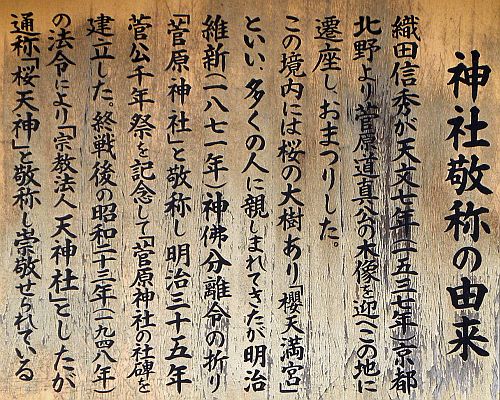 神社敬称の由来
織田信秀が天文七年(一五三七年)京都
北野より菅原道真公の木像を迎へこの地に
遷座し、おまつりした。
この境内には桜の大樹あり「櫻天満宮」
といい、多くの人に親しまれてきたが明治
維新(一八七一年)神佛分離令の折り
「菅原神社」と敬称し明治三十五年
菅公千年祭を記念して「菅原神社の社碑を
建立した。終戦後の昭和二十三年(一九四八年)
の法令により「宗教法人天神社」としたが
通称「桜天神」と敬称し崇敬せられている